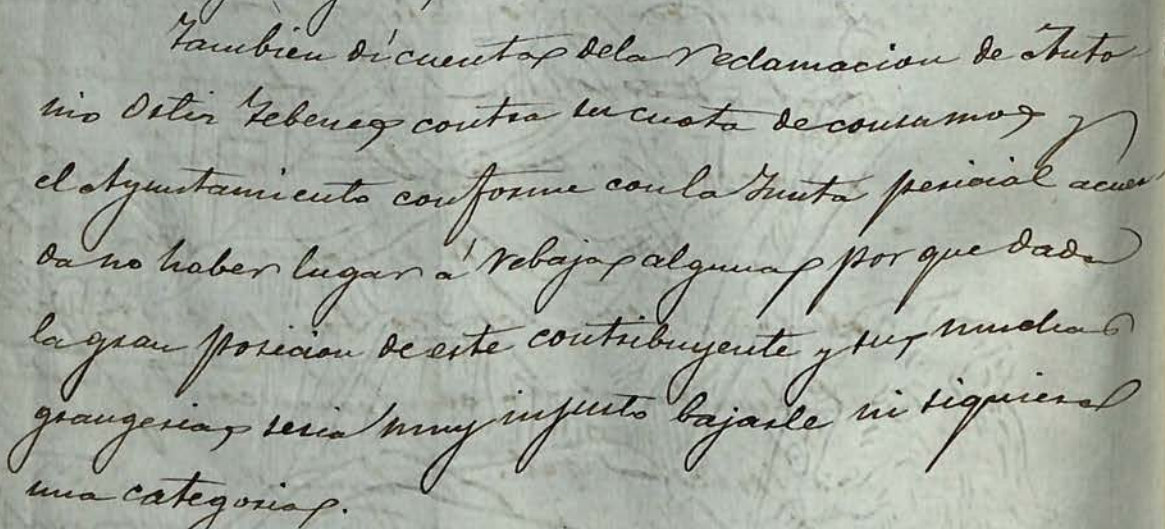 Tambien dí cuenta de la reclamacion de Anto
nio Ortiz Yebenes contra su cuota de consumos y
el Ayuntamiento conforme con la Junta pericial acuer
da no haber lugar á rebaja alguna por que dada
la gran posicion de este contribuyente y sus muchas
grangerias seria muy injusto bajarle ni siquiera
una categoria.